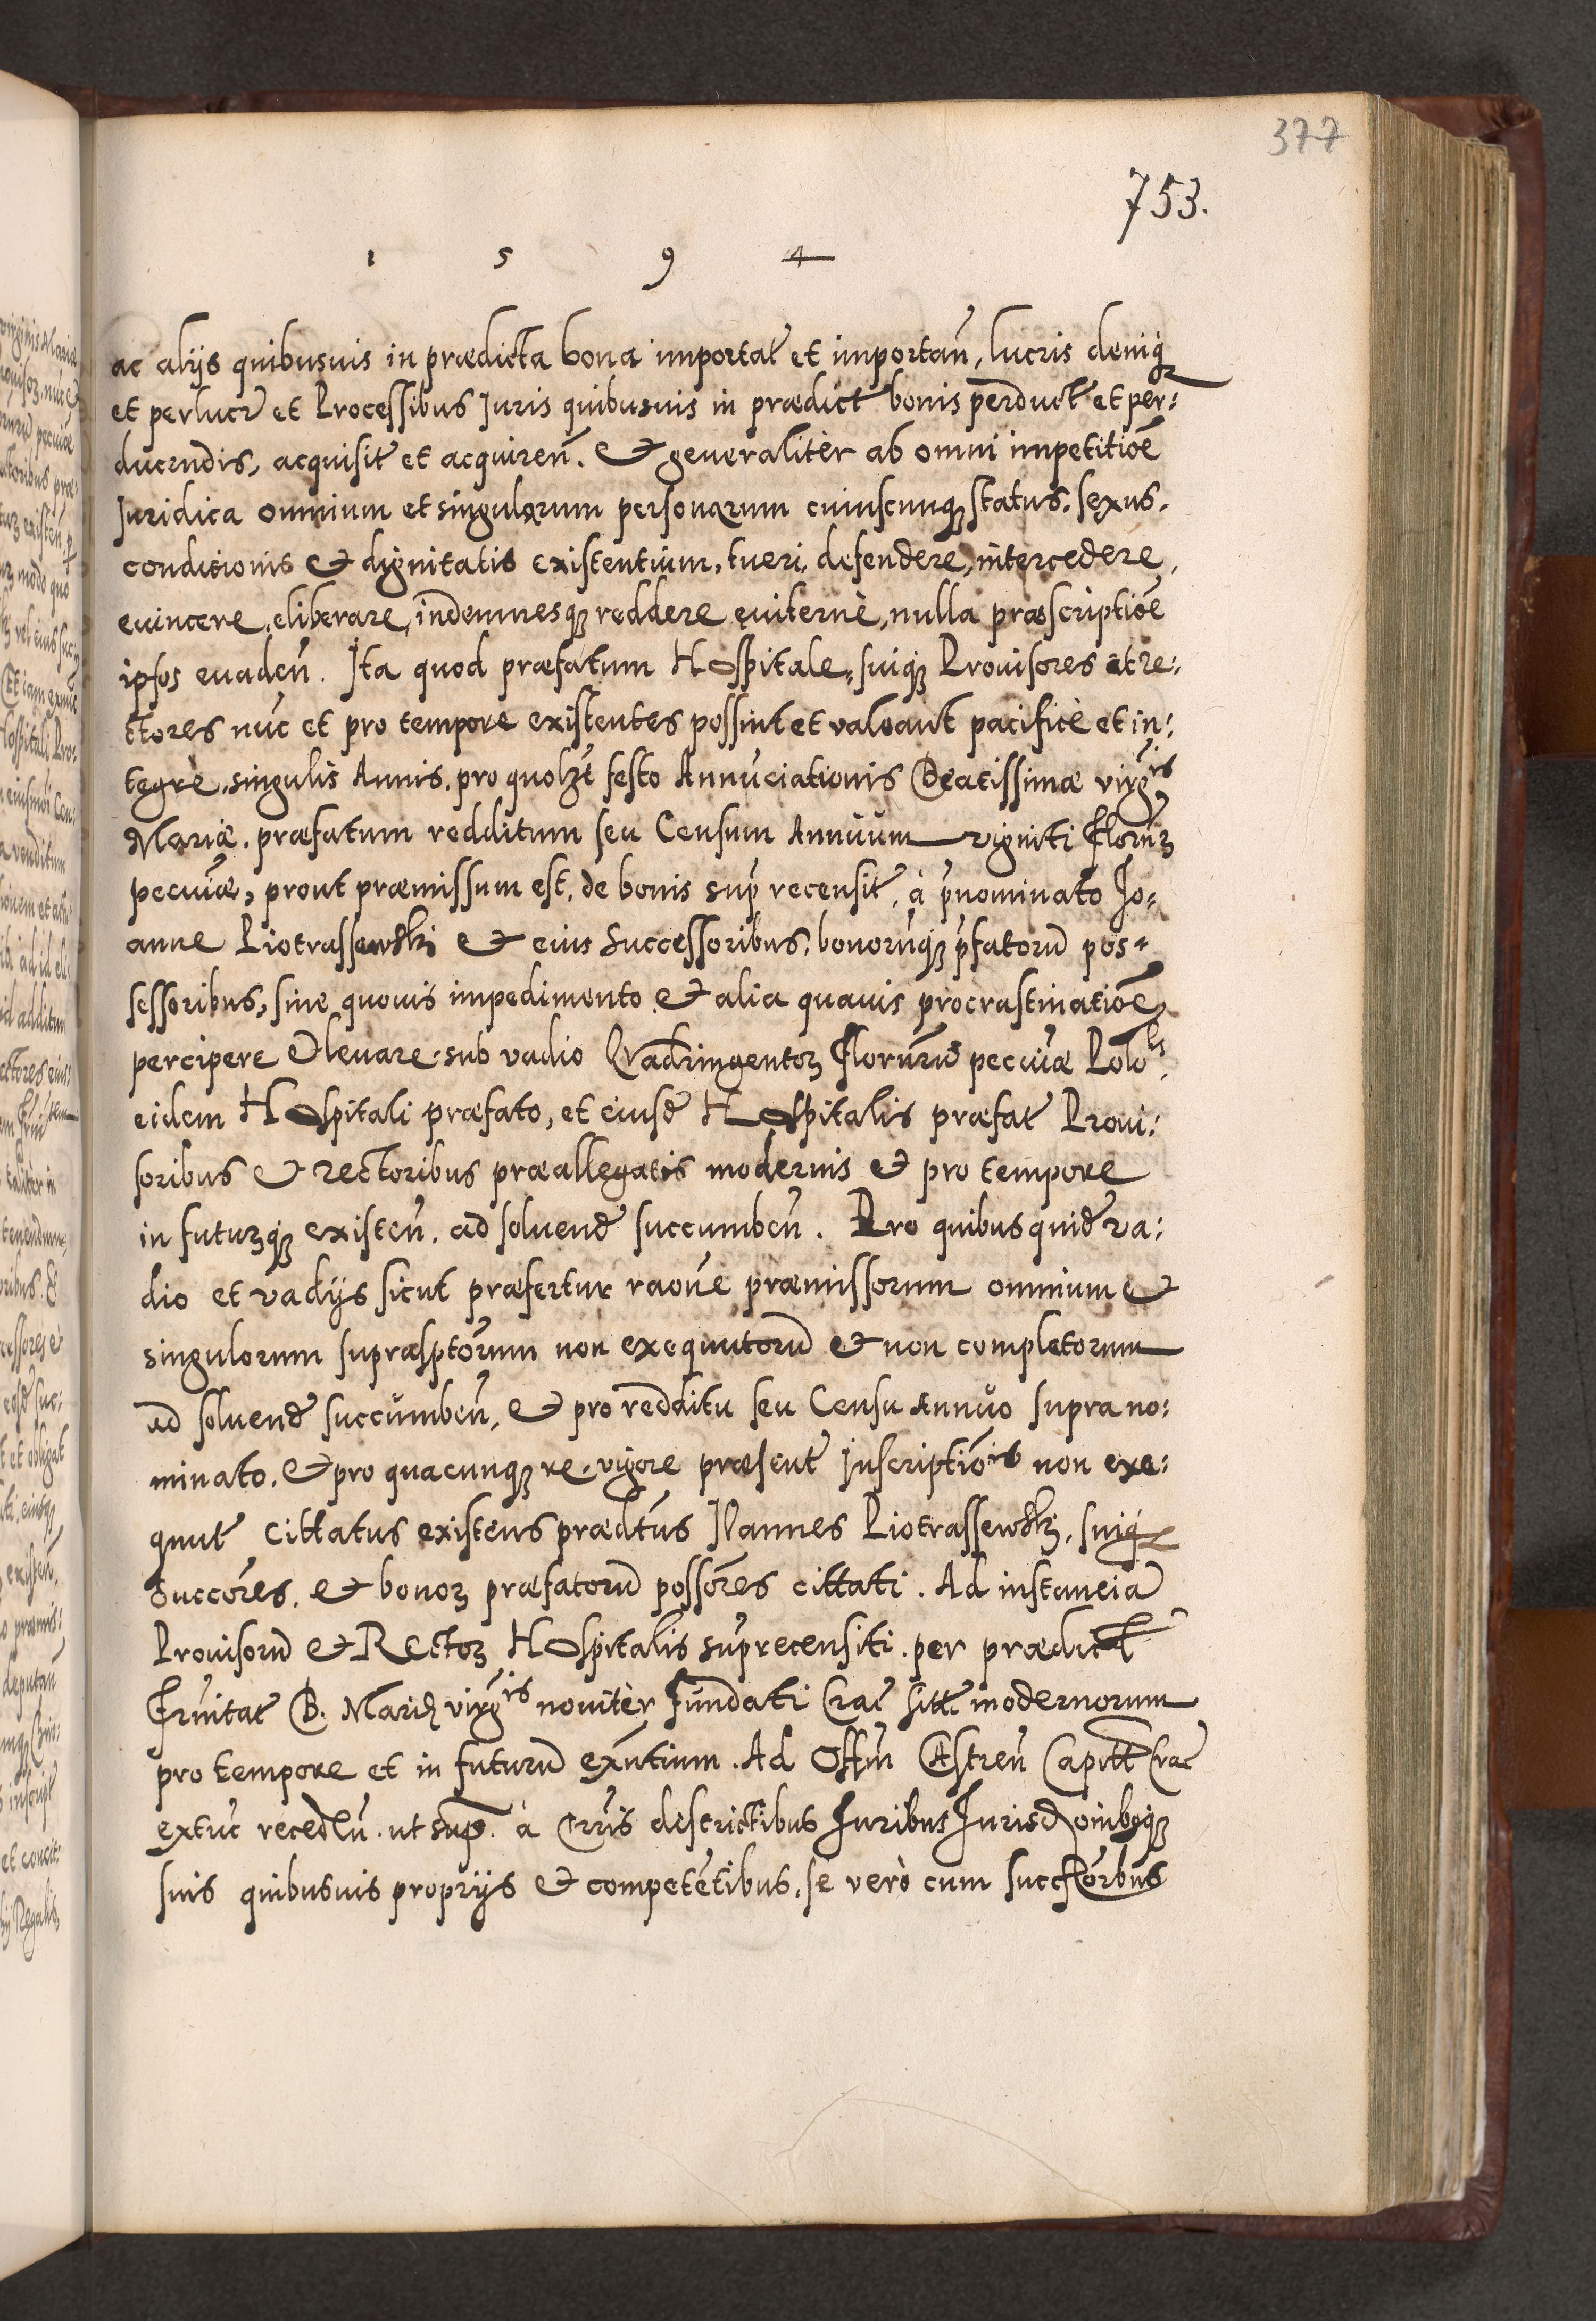 377
753.
1 5 9 4
ac alijs quibusuis in prædicta bona importat et importan̄, lucris deniq̨
et perlucr et Processibus Iuris quibusuis in prædict bonis perduct et per:
ducendis, acquisit et acquiren̄. & generalitèr ab omni impetitiōe
Iuridica omnium et singularum personarum cuiuscunq̨ status, sexus,
conditionis & dignitatis existentium, tueri, defendere, intercedere,
euincere, eliberare, indemnesq̨ reddere euiternè, nulla præscriptiōe
ipsos euaden̄. Ita quod præfatum Hospitale, suiq̨ Prouisores et re:
ctores nūc et pro tempore existentes possint et valeant pacificè et in:
tegrè, singulis Annis, pro quolzt festo Annūciationis Beatissimæ virgis
Mariæ, præfatum redditum seu Censum Annūum viginti Florūz
pecūiæ, prout præmissum est, de bonis sup recensit, à p̄nominato Jo=
anne Piotrassewski & eius Successoribus, bonorūq̨ p̄fatorū pos=
sessoribus, sine quouis impedimento & alia quauis procrastinatiōe
percipere & leuare, sub vadio Quadringentoꝝ Florūrū pecūiæ Polōlis,
eidem Hospitali præfato, et eiusd Hospitalis præfat Proui:
soribus & rectoribus præallegatis modernis & pro tempore
in futurꝝq̨ existen̄. ad soluend succumben̄. Pro quibus quid va:
dio et vadijs sicut præfertur raōne præmissorum omnium &
singulorum supraśptorum non exequutorū & non completorum
ad soluend succūmben̄, & pro redditu seu Censu Annūo supra no:
minato, & pro quacunq̨ re, vigore præsent Inscriptiōis non exe:
quut cittatus existens prædtus Iōannes Piotrassewski, suiq̨
succōres, & bonoꝝ præfatorū possōres cittati. Ad instanciā
Prouisorū & Rectoꝝ Hospitalis sup̄recensiti per prædict
Frūitat B. Mariæ virgis nouitèr fūndati Crac sitt modernorum
pro tempore et in futurū exn̄tium. Ad Offm̄ Cstren̄ Capitt Crac
extūc recedn̄. ut sup. à Trris districtibus Iuribus Iurisd oībusq̨
suis quibusuis proprijs & competētibus, se verò cum succōrbus